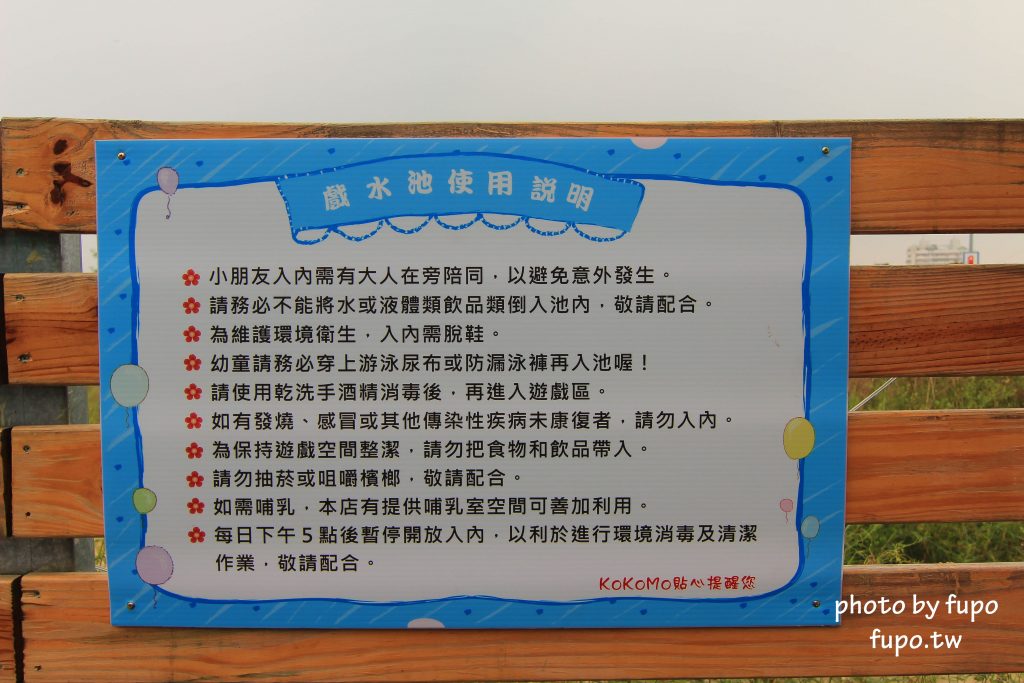 戲水池使用說明
小朋友入內需有大人在旁陪同，以避免意外發生。
請務必不能將水或液體類飲品類倒入池內，敬請配合。
為維護環境衛生，入內需脫鞋。
幼童請務必穿上游泳尿布或防漏泳褲再入池喔！
請使用乾洗手酒精消毒後，再進入遊戲區。
如有發燒、感冒或其他傳染性疾病未康復者，請勿入內。
為保持遊戲空間整潔，請勿把食物和飲品帶入。
請勿抽菸或咀嚼檳榔，敬請配合。
如需哺乳，本店有提供哺乳室空間可善加利用。
每日下午5點後暫停開放入內，以利於進行環境消毒及清潔
作業，敬請配合。
KOKOMO貼心提醒您
photo by fupo
fupo.tw